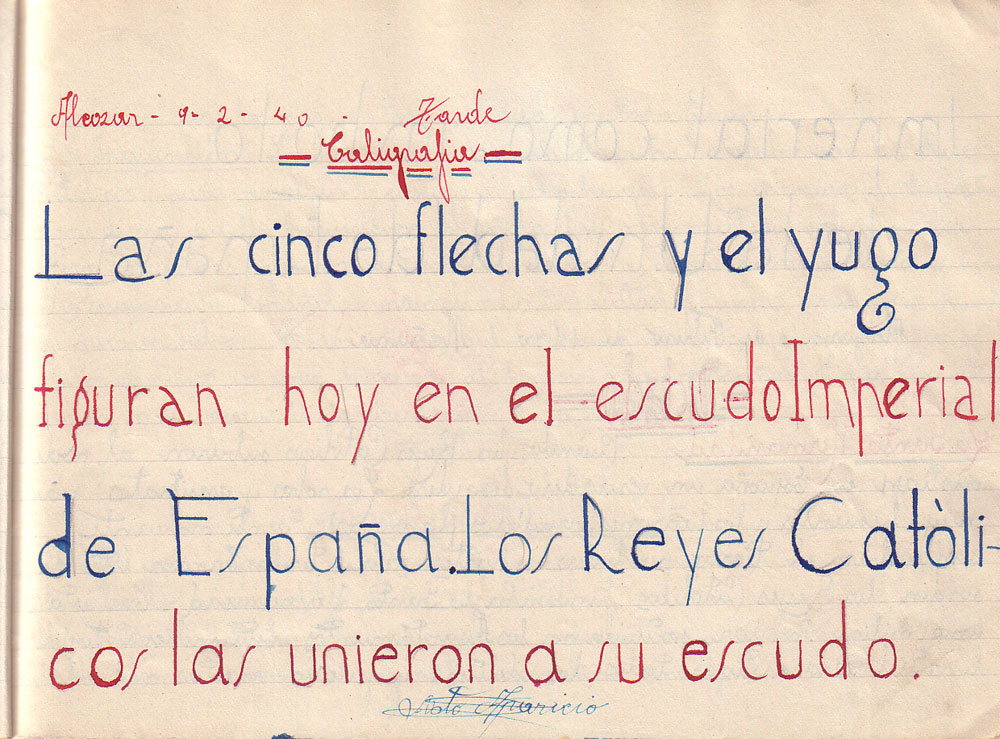 Alcozar - 9 - 2 - 40 - Tarde
Caligrafia
Las cinco flechas y el yugo
figuran hoy en el escudo Imperial
de España. Los Reyes Catòli-
cos las unieron a su escudo.
Aparicio